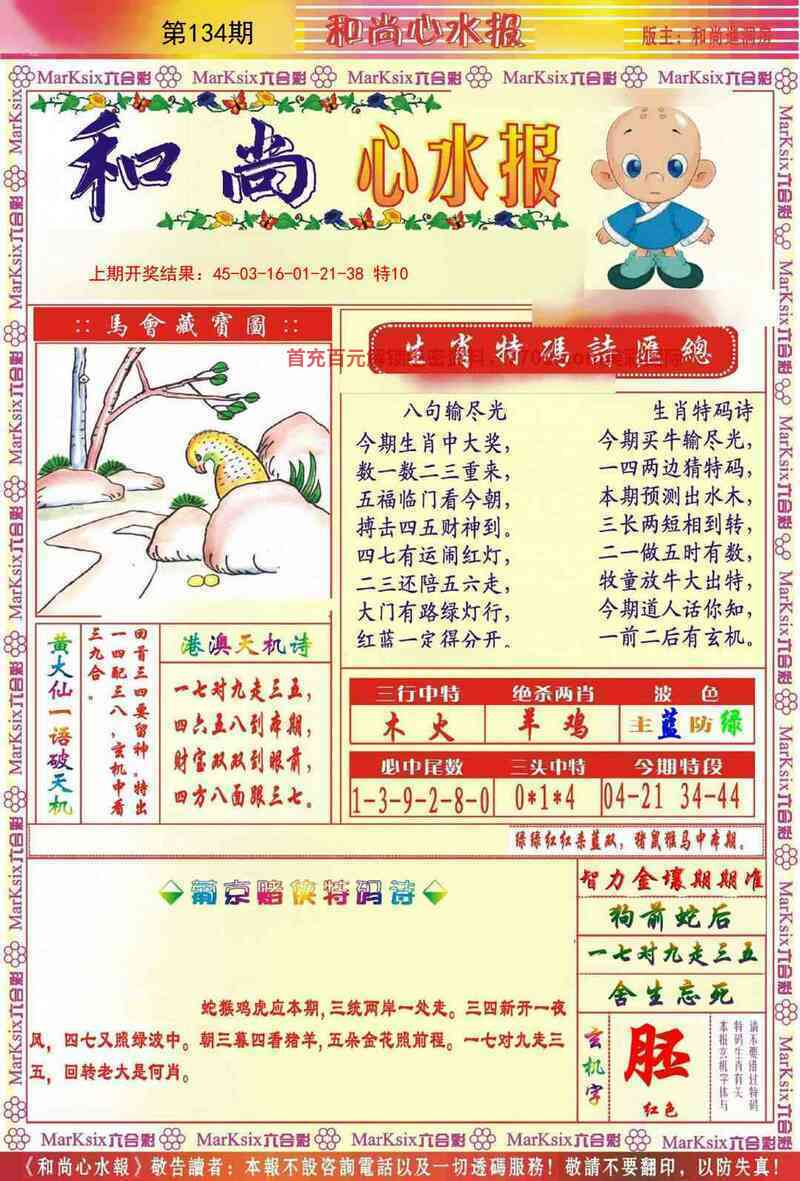 第134期
和尚心水报
MarKsix六合彩 MarKsix六合彩 MarKsix六合彩 MarKsix六合彩 MarKsix六合彩
和尚 心水报
上期开奖结果：45-03-16-01-21-38 特10
::馬會藏寶圖::
生肖特碼詩匯總
八句输尽光
今期生肖中大奖，
数一数二三重来，
五福临门看今朝，
搏击四五财神到。
四七有运闹红灯，
二三还陪五六走，
大门有路绿灯行，
红蓝一定得分开。
生肖特码诗
今期买牛输尽光，
一四两边猜特码，
本期预测出水木，
三长两短相到转，
二一做五时有数，
牧童放牛大出特，
今期道人话你知，
一前二后有玄机。
黄大仙一语破天机
回首三四要留神。特出
一四配三八，玄机中看
三九合。
港澳天机诗
一七对九走三五，
四六五八到本期，
财宝双双到眼前，
四方八面跟三七。
三行中特 绝杀两肖 波色
木火 羊鸡 主蓝防绿
必中尾数 三头中特 今期特段
1-3-9-2-8-0 0*1*4 04-21 34-44
绿绿红红杀蓝双，猪鼠猴马中本期。
葡京赌侠特码诗
蛇猴鸡虎应本期，三统两岸一处走。三四新开一夜
风，四七又照绿波中。朝三暮四看猪羊，五朵金花照前程。一七对九走三
五，回转老大是何肖。
智力金壤期期准
狗前蛇后
一七对九走三五
舍生忘死
玄机字
胚
红色
请不要错过特码
特码生肖有关
本报玄机字体与
MarKsix六合彩 MarKsix六合彩 MarKsix六合彩 MarKsix六合彩 MarKsix六合彩
《和尚心水報》敬告讀者：本報不設咨詢電話以及一切透碼服務！敬請不要翻印，以防失真！